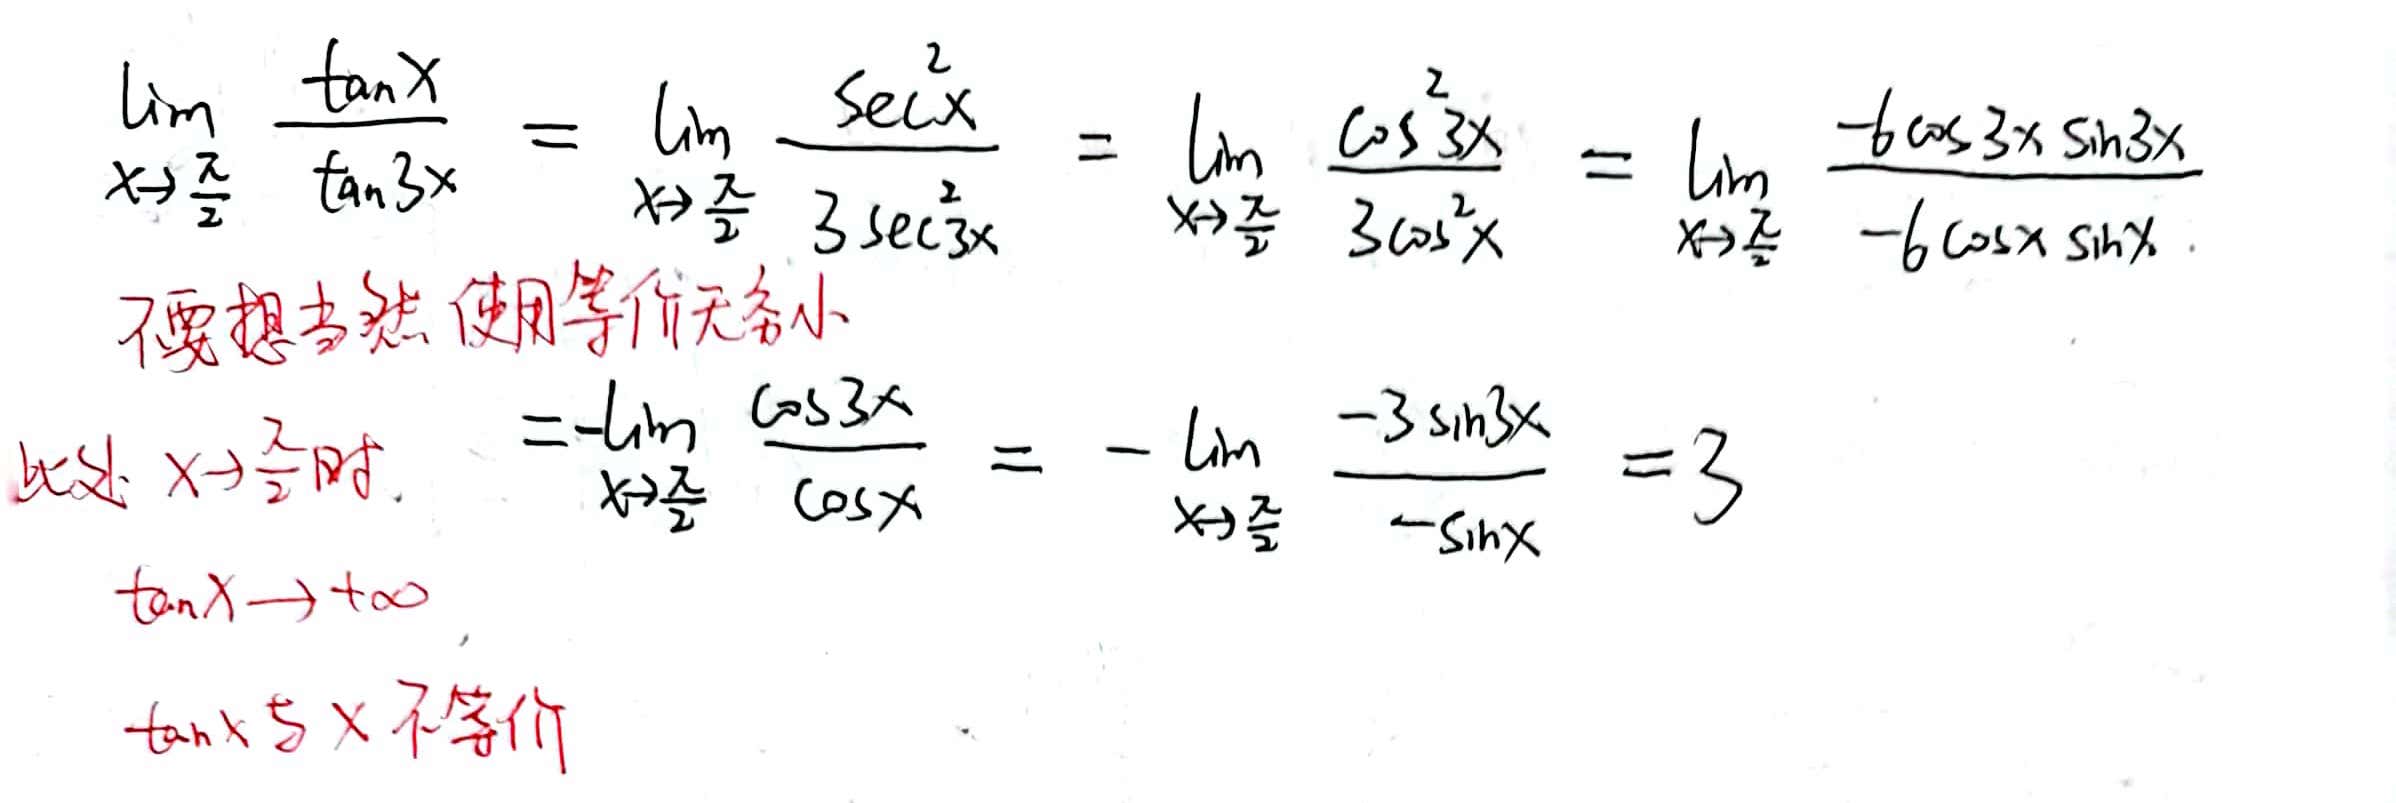 lim_{x→π/2} tanx / tan3x = lim_{x→π/2} sec²x / 3sec²3x = lim_{x→π/2} cos²3x / 3cos²x = lim_{x→π/2} -6cos3x sin3x / -6cosx sinx.
不要想当然使用等价无穷小
= -lim_{x→π/2} cos3x / cosx = -lim_{x→π/2} -3sin3x / -sinx = 3
此处 x→π/2时.
tanx→+∞
tanx与x不等价